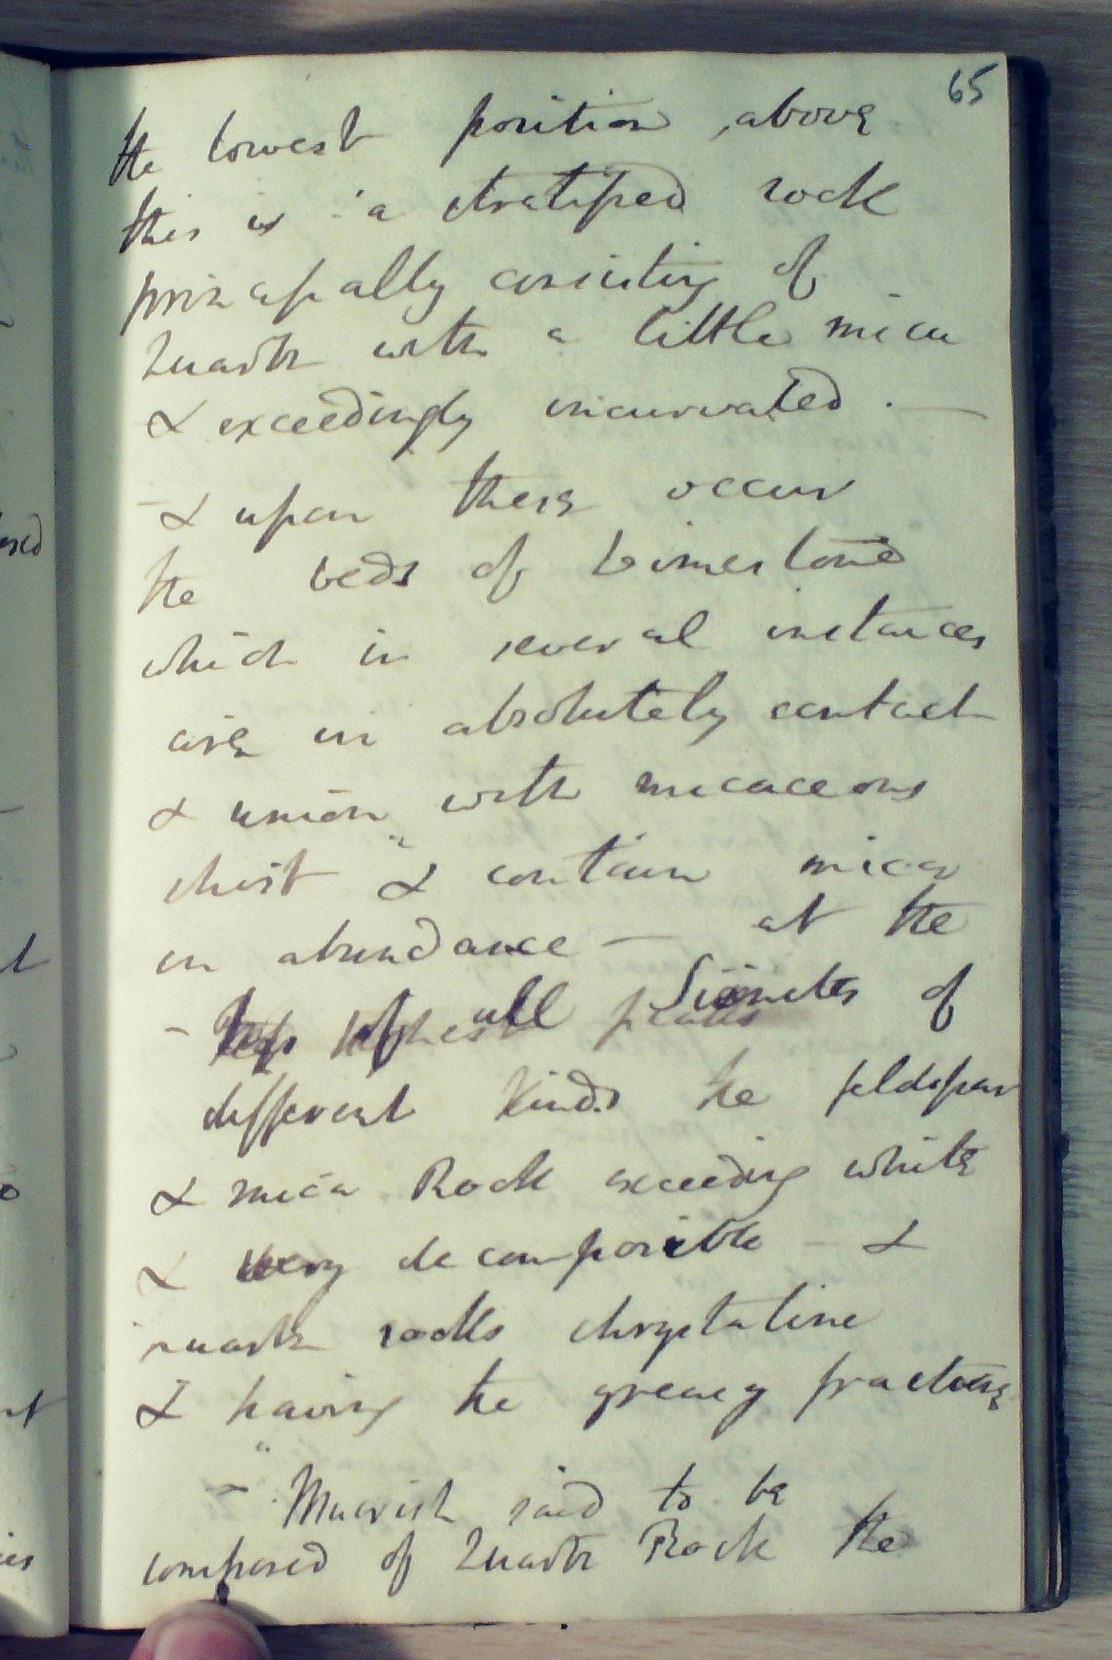 65
the lowest position, above
this is a stratified rock
principally consisting of
Quartz with a little mica
& exceedingly incurvated. —
- & upon these occur
the beds of Limestone
which in several instances
are in absolutely contact
& union with micaceous
shist & contain mica
in abundance — at the
- of all Sienites of
different kinds the feldspar
& mica Rock exceeding white
& very decomposible - &
quartz rocks chrystaline
& having the greasy fracture
- said to be
composed of Quartz Rock the